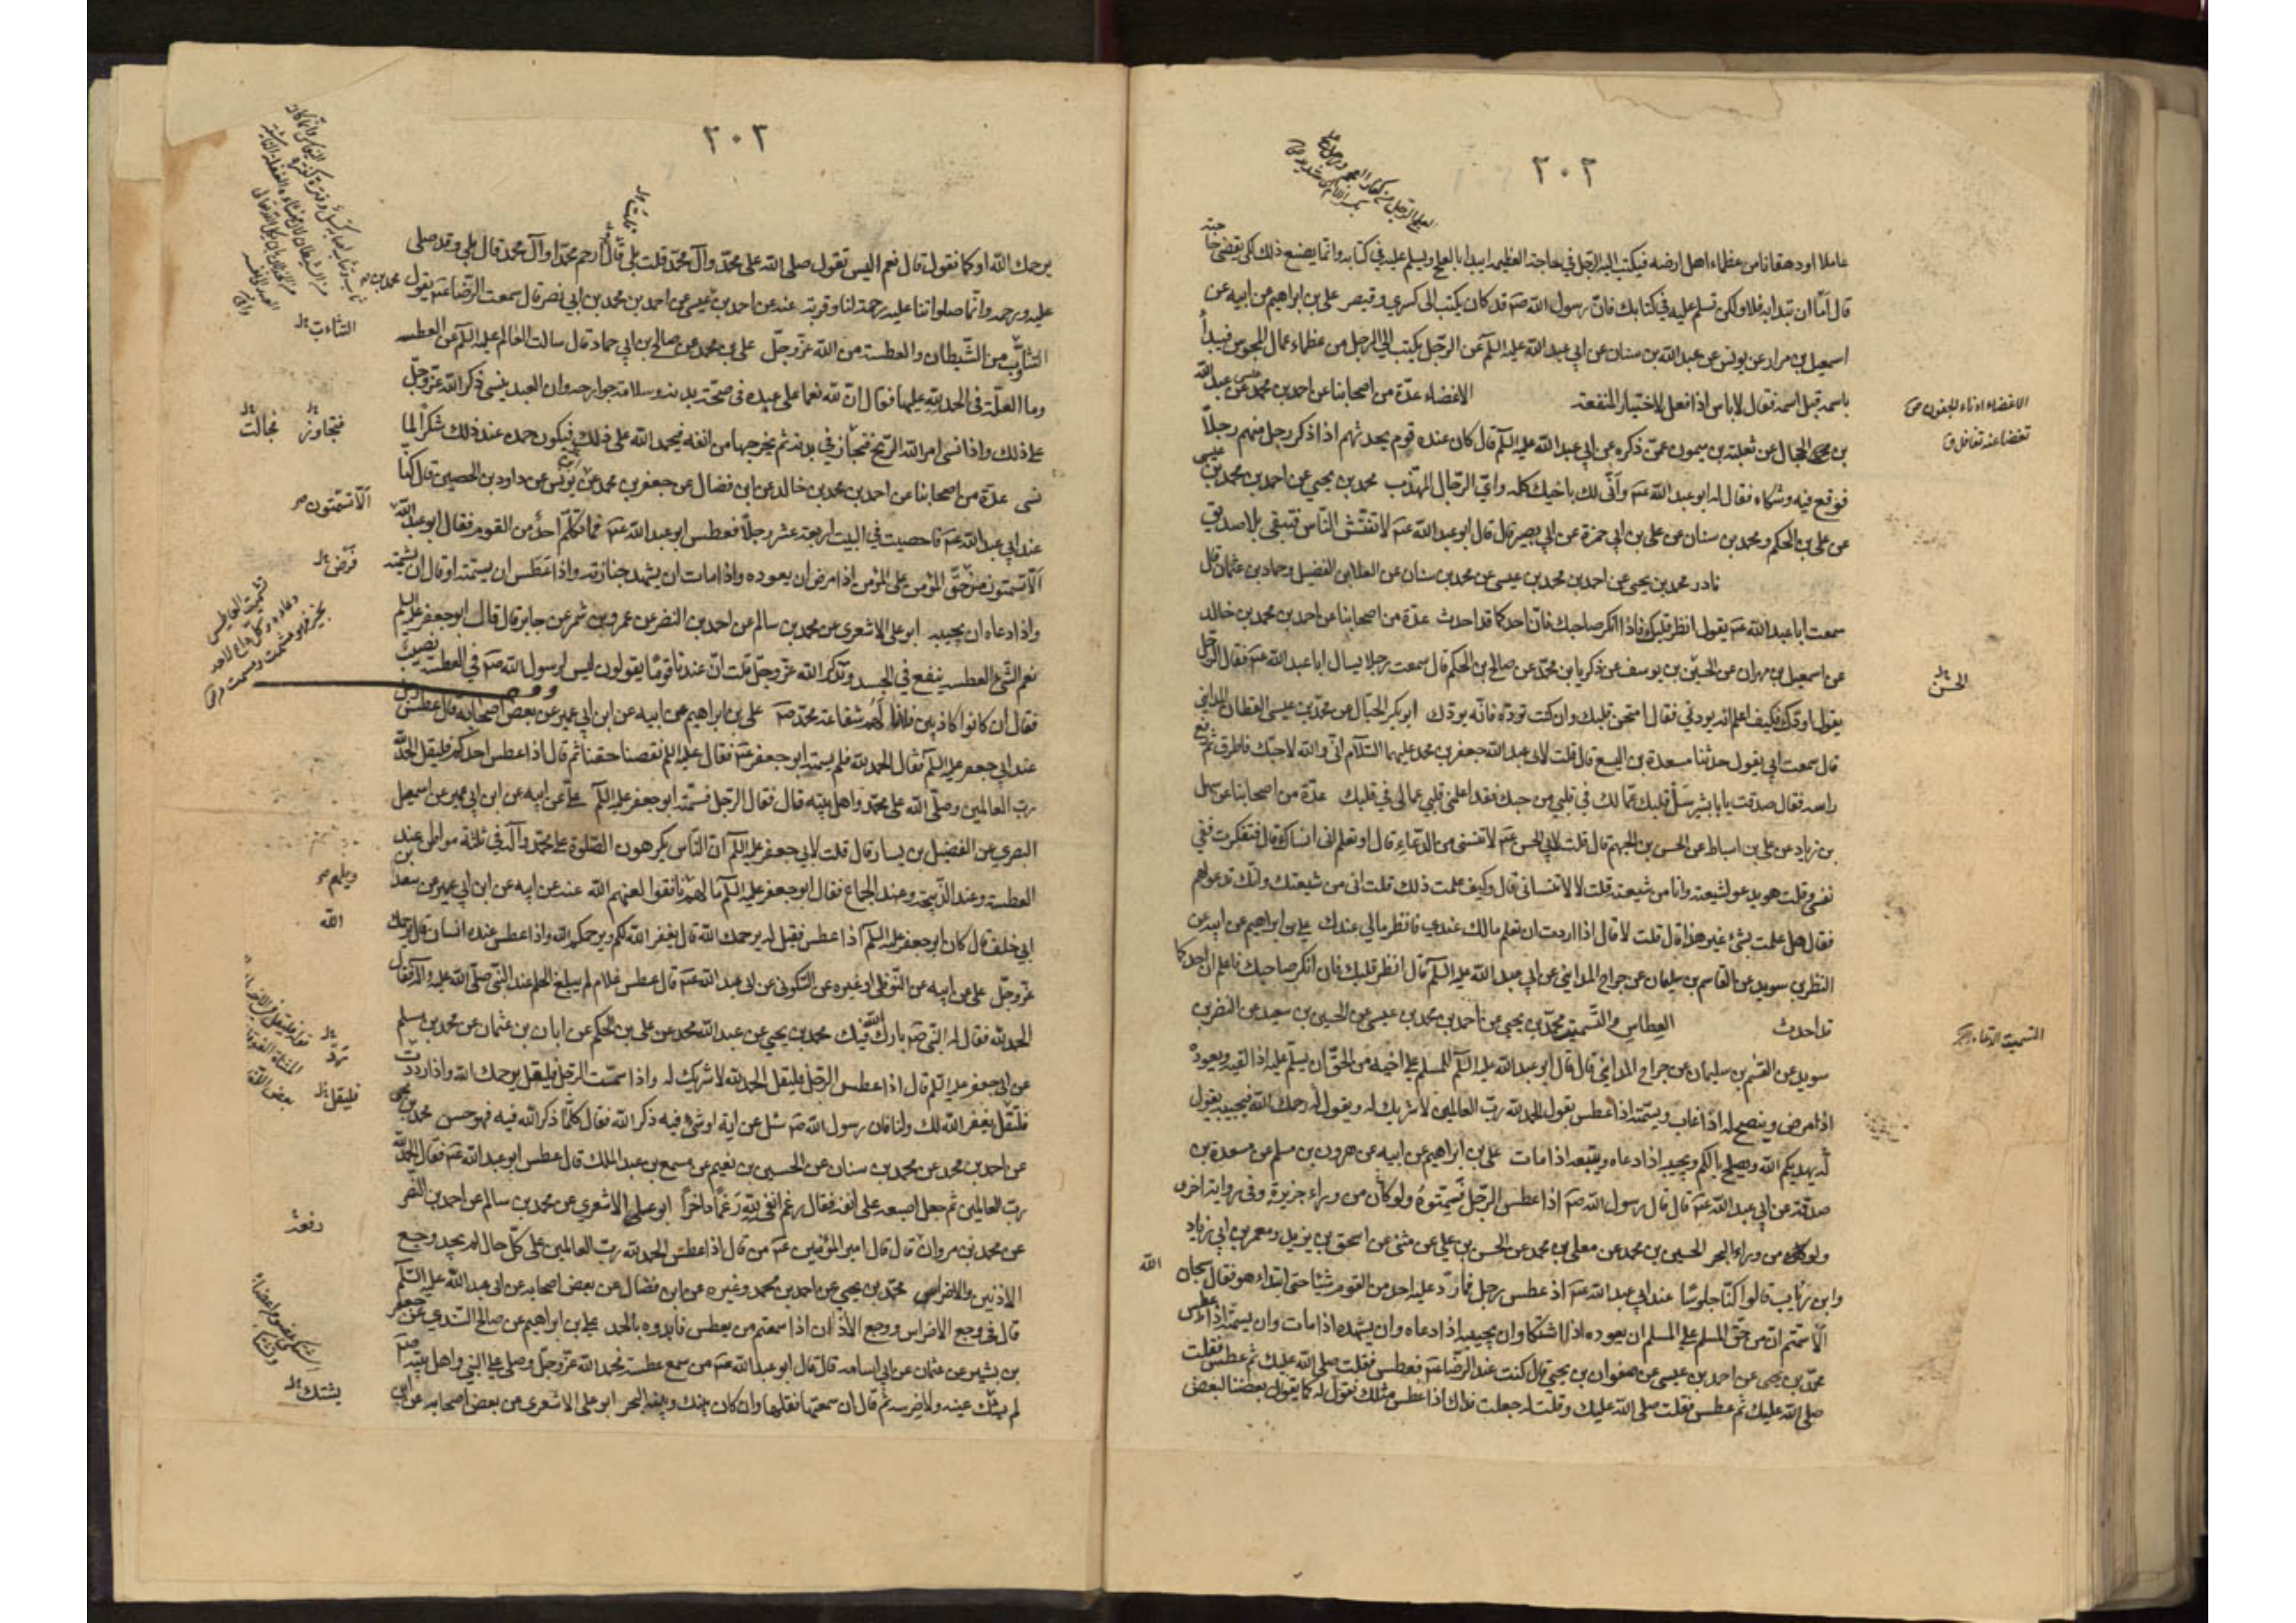 ٢٠٢
عاملا او دهقانا من عظماء اهل ارضه فيكتب اليه الرجل في الحاجة العظيمة ايبدا بالعلج ويسلم عليه في كتابه وانما يصنع ذلك لكى تقضى حاجته
قال امّا ان تبدا به فلا ولكن تسلم عليه في كتابك فان رسول الله صم قد كان يكتب الى كسرى وقيصر على بن ابراهيم عن ابيه عن
اسمعيل بن مرار عن يونس عن عبد الله بن سنان عن ابي عبد الله عليه السلم عن الرّجل يكتب الى الرجل من عظماء عمال المجوس فيبدأ
باسمه قبل اسمه فقال لا باس اذا فعل لاختيار المنفعة الاغضاء عدّة من اصحابنا عن احمد بن محمد عن عبد الله
بن محمد الحجال عن ثعلبة بن ميمون عمّن ذكره عن ابي عبد الله عليه السلم قال كان عنده قوم يحدثهم اذا ذكر رجل منهم رجلاً
فوقع فيه وشكاه فقال له ابو عبد الله عم وأنّى لك باخيك كله واىّ الرّجال المهذّب محمد بن يحيى عن احمد بن محمد بن عيسى
عن على بن الحكم ومحمد بن سنان عن على بن ابي حمزة عن ابي بصير قال قال ابو عبد الله عم لا تفتّش النّاس فتبقى بلا صديق
نادر محمد بن يحيى عن احمد بن محمد بن عيسى عن محمد بن سنان عن العلا بن الفضيل وحماد بن عثمان قال
سمعت ابا عبد الله عم يقول انظر قلبك فاذا انكر صاحبك فان احدكما قد احدث عدّة من اصحابنا عن احمد بن محمد بن خالد
عن اسمعيل بن مهران عن الحسن بن يوسف عن زكريا بن محمّد عن صالح بن الحكم قال سمعت رجلا يسال ابا عبد الله عم فقال الرّجل
يقول اودّك فكيف اعلم انه يودني فقال امتحن قلبك وان كنت تودّه فانّه يودّك ابو بكر الحبال عن محمّد بن عيسى القطان المدايني
قال سمعت ابي يقول حدثنا مسعدة بن اليسع قال قلت لابي عبد الله جعفر بن محمد عليهما السّلام انّي والله لاحبّك فاطرق ثم رفع
راسه فقال صدقت يابا بشير سَل قلبك عمّا لك في قلبي من حبك فقد اعلمنى قلبي عمالى في قلبك عدّة من اصحابنا عن سهل
بن زياد عن على بن اسباط عن الحسن بن الجهم قال قلت لابي الحسن عم لا تنسنى من الدّعاء قال او تعلم انى انساك قال فتفكرت في
نفسى وقلت هو يدعو لشيعته وانا من شيعته قلت لا لا تنسانى قال وكيف علمت ذلك قلت انى من شيعتك وانّك تدعو لهم
فقال هل علمت بشئ غير هذا قال قلت لا قال اذا اردت ان تعلم مالك عندى فانظر ما لي عندك على بن ابراهيم عن ابيه عن
النظر بن سويد عن القاسم بن سليمان عن جراح المدايني عن ابي عبد الله عليه السلم قال انظر قلبك فان انكر صاحبك فاعلم ان احدكما
قد احدث العطاس والتّسميت محمّد بن يحيى عن احمد بن محمد بن عيسى عن الحسين بن سعيد عن النضر بن
سويد عن القسم بن سليمان عن جراح المدايني قال قال ابو عبد الله عليه السلم للمسلم على اخيه من الحقّ ان يسلّم عليه اذا لقيه ويعوده
اذا مرض وينصح له اذا غاب ويسمّته اذا عطس يقول الحمد لله ربّ العالمين لا شريك له ويقول له يرحمك الله فيجيبه يقول
له يهديكم الله ويصلح بالكم ويجيبه اذا دعاه ويتبعه اذا مات على بن ابراهيم عن ابيه عن هرون بن مسلم عن مسعدة بن
صدقة عن ابي عبد الله عم قال قال رسول الله صم اذا عطس الرّجل فَسمّتوهُ ولو كان من وراء جزيرة وفى رواية اخرى
ولو كان من وراء البحر الحسين بن محمد عن معلى بن محمد عن الحسن بن علي عن مثنى عن اسحق بن يزيد ومعمر بن ابي زياد
وابن رئاب قالوا كنّا جلوسًا عند ابي عبد الله عم اذ عطس رجل فما ردّ عليه احد من القوم شيئا حتى ابتداء هو فقال سبحان الله
الا سمّتم ان من حقّ المسلم على المسلم ان يعوده اذا اشتكا وان يجيبه اذا دعاه وان يشهده اذا مات وان يسمّته اذا عطس
محمّد بن يحيى عن احمد بن عيسى عن صفوان بن يحيى قال كنت عند الرّضا عم فعطس فقلت صلى الله عليك ثم عطس فقلت
صلى الله عليك ثم عطس فقلت صلى الله عليك وقلت له جعلت فداك اذا عطس مثلك نقول له كما يقول بعضنا لبعض
الاغضاء ادناء الجفون ص
تغضا عنه تغافل ق
الحسن
التسميت الدّعاء
٢٠٣
يرحمك الله او كما نقول قال نعم اليس تقول صلى الله على محمّد وآل محمّد قلت بلى قال ارحم محمّدا وآل محمّد قال بلى وقد صلى
عليه ورحمه وانما صلواتنا عليه رحمة لنا وقربة عنه عن احمد بن محمد بن عيسى عن احمد بن محمد بن ابي نصر قال سمعت الرّضا عم يقول
التثاؤب من الشّيطان والعطسة من الله عزّ وجلّ على بن محمد عن صالح بن ابي حماد قال سالت العالم عليه السلم عن العطسة
وما العلّة في الحمد لله عليها فقال انّ لله نعما على عبده في صحّة بدنه وسلامة جوارحه وان العبد ينسى ذكر الله عزّ وجلّ
على ذلك واذا نسى امر الله الرّيح فتجاز في بدنه ثم يخرجها من انفه فيحمد الله على ذلك فيكون حمده عند ذلك شكرًا لما
نسى عدّة من اصحابنا عن احمد بن محمد بن خالد عن ابن فضال عن جعفر بن محمد عن يونس عن داود بن الحصين قال كنّا
عند ابي عبد الله عم فاحصيت في البيت اربعة عشر رجلاً فعطس ابو عبد الله عم فما تكلّم احدٌ من القوم فقال ابو عبد الله
الا تسمّتون من حقّ المؤمن على المؤمن اذا مرض ان يعوده واذا مات ان يشهد جنازته واذا عطس ان يسمّته او قال ان يشمّته
واذا دعاه ان يجيبه ابو على الاشعرى عن محمد بن سالم عن احمد بن النضر عن عمرو بن شمر عن جابر قال قال ابو جعفر عليه السلم
نعم الشّئ العطسة ينفع في الجسد وتذكر الله عزّ وجلّ قلت انّ عندنا قومًا يقولون ليس لرسول الله صم في العطسة نصيبٌ
فقال ان كانوا كاذبين فلا نالهم شفاعة محمّد صم على بن ابراهيم عن ابيه عن ابن ابي عمير عن بعض اصحابه قال عطس رجل
عند ابي جعفر عليه السلم فقال الحمد لله فلم يسمته ابو جعفر عم فقال عليه السلم نقصنا حقنا ثم قال اذا عطس احدكم فليقل الحمد لله
ربّ العالمين وصلّى الله على محمّد واهل بيته قال فقال الرّجل فسمّته ابو جعفر عليه السلم علىّ عن ابيه عن ابن ابي عمير عن اسمعيل
البصري عن الفضيل بن يسار قال قلت لابي جعفر عليه السلم انّ النّاس يكرهون الصّلوة على محمّد وآله في ثلثة مواطن عند
العطسة وعند الذّبيحة وعند الجماع فقال ابو جعفر عليه السلم ما لهم نافقوا لعنهم الله عنه عن ابيه عن ابن ابي عمير عن سعد بن
ابي خلف قال كان ابو جعفر عليه السلم اذا عطس فقيل له يرحمك الله قال يغفر الله لكم ويرحمكم الله واذا عطس عنده انسان قال يرحمك
عزّ وجلّ على عن ابيه عن النّوفلى او غيره عن السّكونى عن ابي عبد الله عم قال عطس غلام لم يبلغ الحلم عند النّبى صلّى الله عليه وآله فقال
الحمد لله فقال له النّبى صم بارك الله فيك محمد بن يحيى عن عبد الله محمد عن على بن الحكم عن ابان بن عثمان عن محمد بن مسلم
عن ابي جعفر عليه السلم قال اذا عطس الرّجل فليقل الحمد لله لا شريك له واذا سمّت الرّجل فليقل يرحمك الله واذا رددت
فلتقل يغفر الله لك ولنا فان رسول الله صم سئل عن اية او شئ فيه ذكر الله فقال كلّما ذكر الله فيه فهو حسن محمد بن يحيى
عن احمد بن محمد عن محمد بن سنان عن الحسين بن نعيم عن مسمع بن عبد الملك قال عطس ابو عبد الله عم فقال الحمد لله
ربّ العالمين ثم جعل اصبعه على انفه فقال رغم انفى لله رَغمًا داخرًا ابو على الاشعري عن محمد بن سالم عن احمد بن النضر
عن محمد بن مروان قال قال امير المؤمنين عم من قال اذا عطس الحمد لله ربّ العالمين على كلّ حال لم يجد وجع
الاذنين والاضراس محمّد بن يحيى عن احمد بن محمد وغيره عن ابن فضال عن بعض اصحابه عن ابي عبد الله عليه السّلم
قال في وجع الاضراس ووجع الآذان اذا سمعتم من يعطس فابدوه بالحمد على بن ابراهيم عن صالح السّندى عن جعفر
بن بشير عن عثمان عن ابي اسامه قال قال ابو عبد الله عم من سمع عطسة فحمد الله عزّ وجلّ وصلى على النبي واهل بيته صم
لم يشتك عينه ولا ضرسه ثم قال ان سمعتها فقلها وان كان بينك وبينه البحر ابو على الاشعرى عن بعض اصحابه عن ابن
محمد بن
التثاءب
فتجاوز
فجالت
الا تسمّتون
فرّض
الله
فليقل
دفعة
يشتك